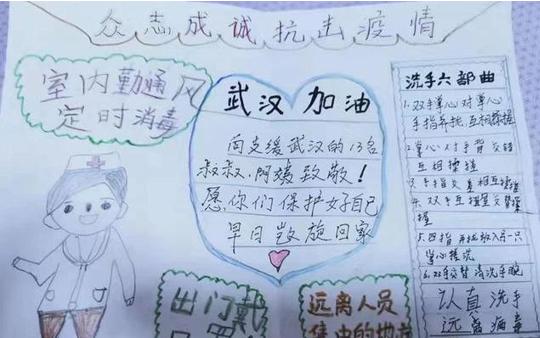 众志成诚抗击疫情
室内勤通风
定时消毒
武汉加油
向支缓武汉的13名
叔叔,阿姨致敬!
愿你们保护好自己
早日凯旋回家
洗手六部曲
1.双手掌心对掌心
手指并拢,互相揉搓
2.掌心对手背交错
互相揉搓
手指交差相互揉搓
双手互握
5.四指并拢放入另一只
掌心揉洗
6.双手交替清洗手腕
认真洗手
远离病毒
出门戴
远离人员
集中的地